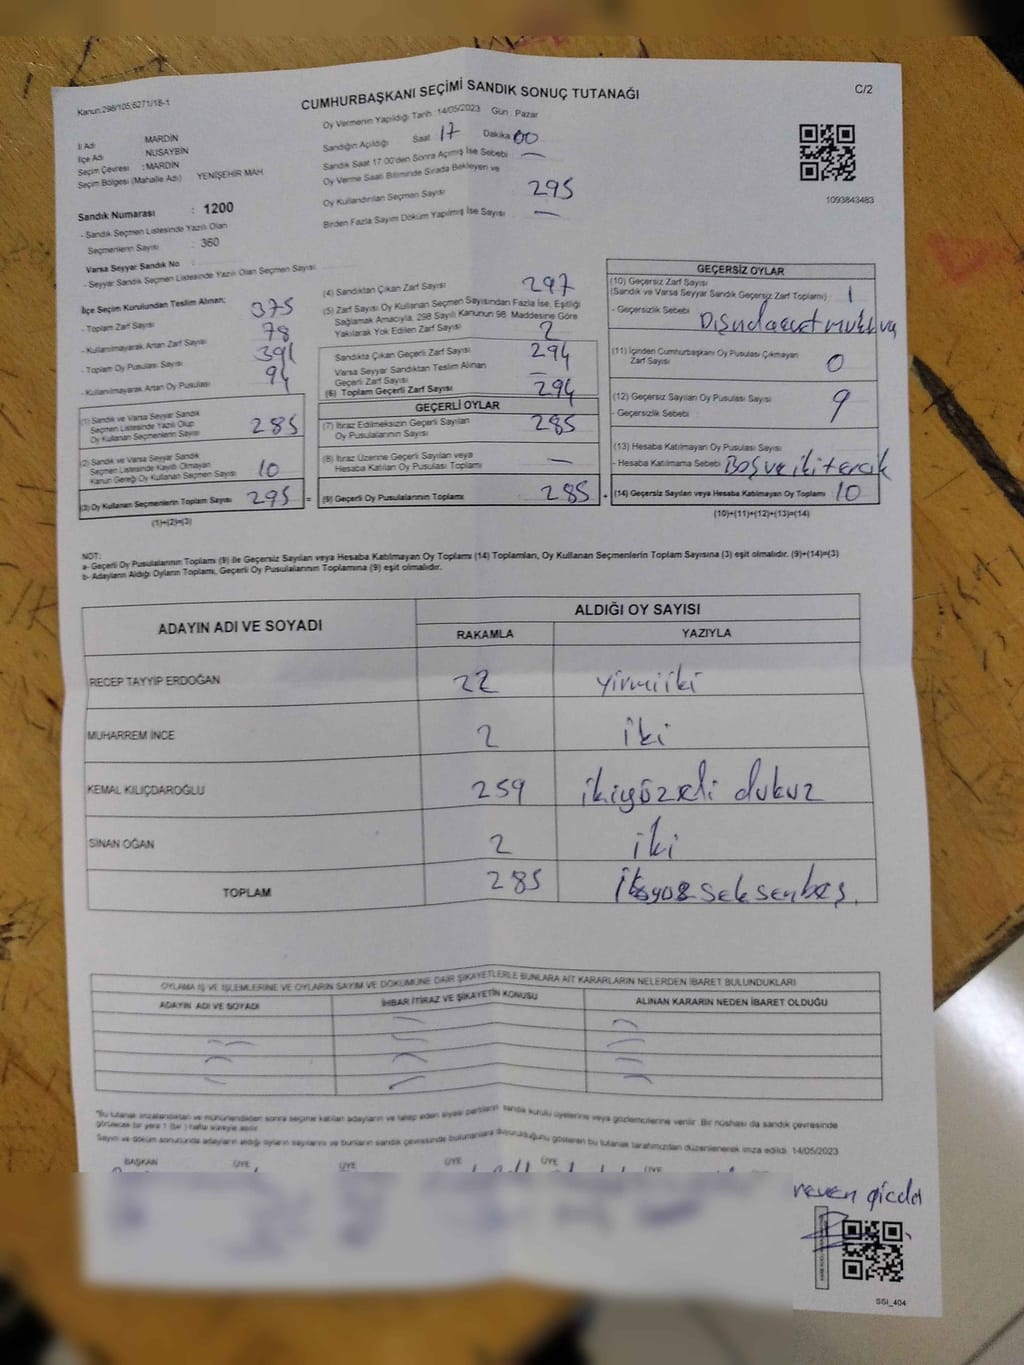 Kanun:298/105;6271/18-1
CUMHURBAŞKANI SEÇİMİ SANDIK SONUÇ TUTANAĞI
C/2
İl Adı MARDİN
İlçe Adı NUSAYBİN
Seçim Çevresi : MARDİN
Seçim Bölgesi (Mahalle Adı) YENİŞEHİR MAH
Sandık Numarası : 1200
- Sandık Seçmen Listesinde Yazılı Olan
Seçmenlerin Sayısı : 360
Varsa Seyyar Sandık No
- Seyyar Sandık Seçmen Listesinde Yazılı Olan Seçmen Sayısı:
Oy Vermenin Yapıldığı Tarih :14/05/2023 Gün : Pazar
Sandığın Açıldığı Saat 17 Dakika 00
Sandık Saat 17.00'den Sonra Açımış İse Sebebi —
Oy Verme Saati Bitiminde Sırada Bekleyen ve
Oy Kullandırılan Seçmen Sayısı 295
Birden Fazla Sayım Döküm Yapılmış İse Sayısı —
1093843483
İlçe Seçim Kurulundan Teslim Alınan;
- Toplam Zarf Sayısı 375
- Kullanılmayarak Artan Zarf Sayısı 78
- Toplam Oy Pusulası Sayısı 391
- Kullanılmayarak Artan Oy Pusulası 94
(1) Sandık ve Varsa Seyyar Sandık
Seçmen Listesinde Yazılı Olup
Oy Kullanan Seçmenlerin Sayısı 285
(2) Sandık ve Varsa Seyyar Sandık
Seçmen Listesinde Kayıtlı Olmayan
Kanun Gereği Oy Kullanan Seçmen Sayısı 10
(3) Oy Kullanan Seçmenlerin Toplam Sayısı 295 =
(1)+(2)=(3)
(4) Sandıktan Çıkan Zarf Sayısı 297
(5) Zarf Sayısı Oy Kullanan Seçmen Sayısından Fazla İse, Eşitliği
Sağlamak Amacıyla, 298 Sayılı Kanunun 98. Maddesine Göre
Yakılarak Yok Edilen Zarf Sayısı 2
Sandıkta Çıkan Geçerli Zarf Sayısı 294
Varsa Seyyar Sandıktan Teslim Alınan
Geçerli Zarf Sayısı —
(6) Toplam Geçerli Zarf Sayısı 294
GEÇERLİ OYLAR
(7) İtiraz Edilmeksizin Geçerli Sayılan
Oy Pusulalarının Sayısı 285
(8) İtiraz Üzerine Geçerli Sayılan veya
Hesaba Katılan Oy Pusulası Toplamı —
(9) Geçerli Oy Pusulalarının Toplamı 285 +
GEÇERSİZ OYLAR
(10) Geçersiz Zarf Sayısı
(Sandık ve Varsa Seyyar Sandık Geçersiz Zarf Toplamı) 1
- Geçersizlik Sebebi
(11) İçinden Cumhurbaşkanı Oy Pusulası Çıkmayan
Zarf Sayısı 0
(12) Geçersiz Sayılan Oy Pusulası Sayısı 9
- Geçersizlik Sebebi
(13) Hesaba Katılmayan Oy Pusulası Sayısı
- Hesaba Katılmama Sebebi Boş ve iki tercik
(14) Geçersiz Sayılan veya Hesaba Katılmayan Oy Toplamı 10
(10)+(11)+(12)+(13)=(14)
NOT:
a- Geçerli Oy Pusulalarının Toplamı (9) ile Geçersiz Sayılan veya Hesaba Katılmayan Oy Toplamı (14) Toplamları, Oy Kullanan Seçmenlerin Toplam Sayısına (3) eşit olmalıdır. (9)+(14)=(3)
b- Adayların Aldığı Oyların Toplamı, Geçerli Oy Pusulalarının Toplamına (9) eşit olmalıdır.
ADAYIN ADI VE SOYADI ALDIĞI OY SAYISI
RAKAMLA YAZIYLA
RECEP TAYYİP ERDOĞAN 22 yirmiiki
MUHARREM İNCE 2 iki
KEMAL KILIÇDAROĞLU 259 ikiyüzelli dukuz
SİNAN OĞAN 2 iki
TOPLAM 285 ikiyüz seksenbeş.
OYLAMA İŞ VE İŞLEMLERİNE VE OYLARIN SAYIM VE DÖKÜMÜNE DAİR ŞİKAYETLERLE BUNLARA AİT KARARLARIN NELERDEN İBARET BULUNDUKLARI
ADAYIN ADI VE SOYADI İHBAR İTİRAZ VE ŞİKAYETİN KONUSU ALINAN KARARIN NEDEN İBARET OLDUĞU
*Bu tutanak imzalandıktan ve mühürlendikten sonra seçime katılan adayların ve talep eden siyasi partilerin sandık kurulu üyelerine veya gözlemcilerine verilir. Bir nüshası da sandık çevresinde
görülecek bir yere 1 (bir) hafta süreyle asılır.
Sayım ve döküm sonucunda adayların aldığı oyların sayılarını ve bunların sandık çevresinde bulunanlara duyurulduğunu gösteren bu tutanak tarafımızdan düzenlenerek imza edildi. 14/05/2023
BAŞKAN ÜYE ÜYE ÜYE ÜYE ÜYE ÜYE
SSI_404